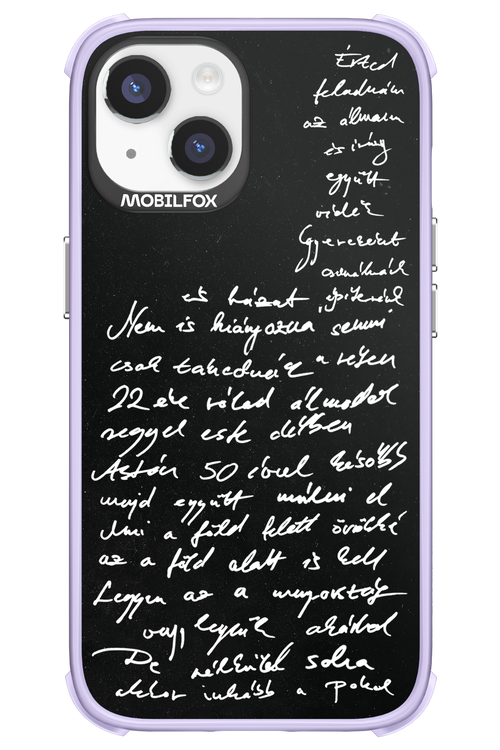 MOBILFOX
Érted
feladnám
az álmaim
és így
együtt
Gyerekeket
csinálnánk
és házat építenénk
Nem is hiányozna semmi
csak tekednék a
22 éve rólad álmodok
reggel este délben
Aztán 50 évvel később
majd együtt múlni el
Ami a föld felett örökké
az a föld alatt is kell
Legyen az a mennyország
vagy legyünk akárhol
De nélküled soha
akkor inkább a Pokol